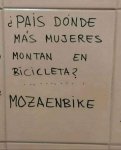 ¿PAÍS DÓNDE
MÁS MUJERES
MONTAN EN
BICICLETA?
............
MOZAENBIKE